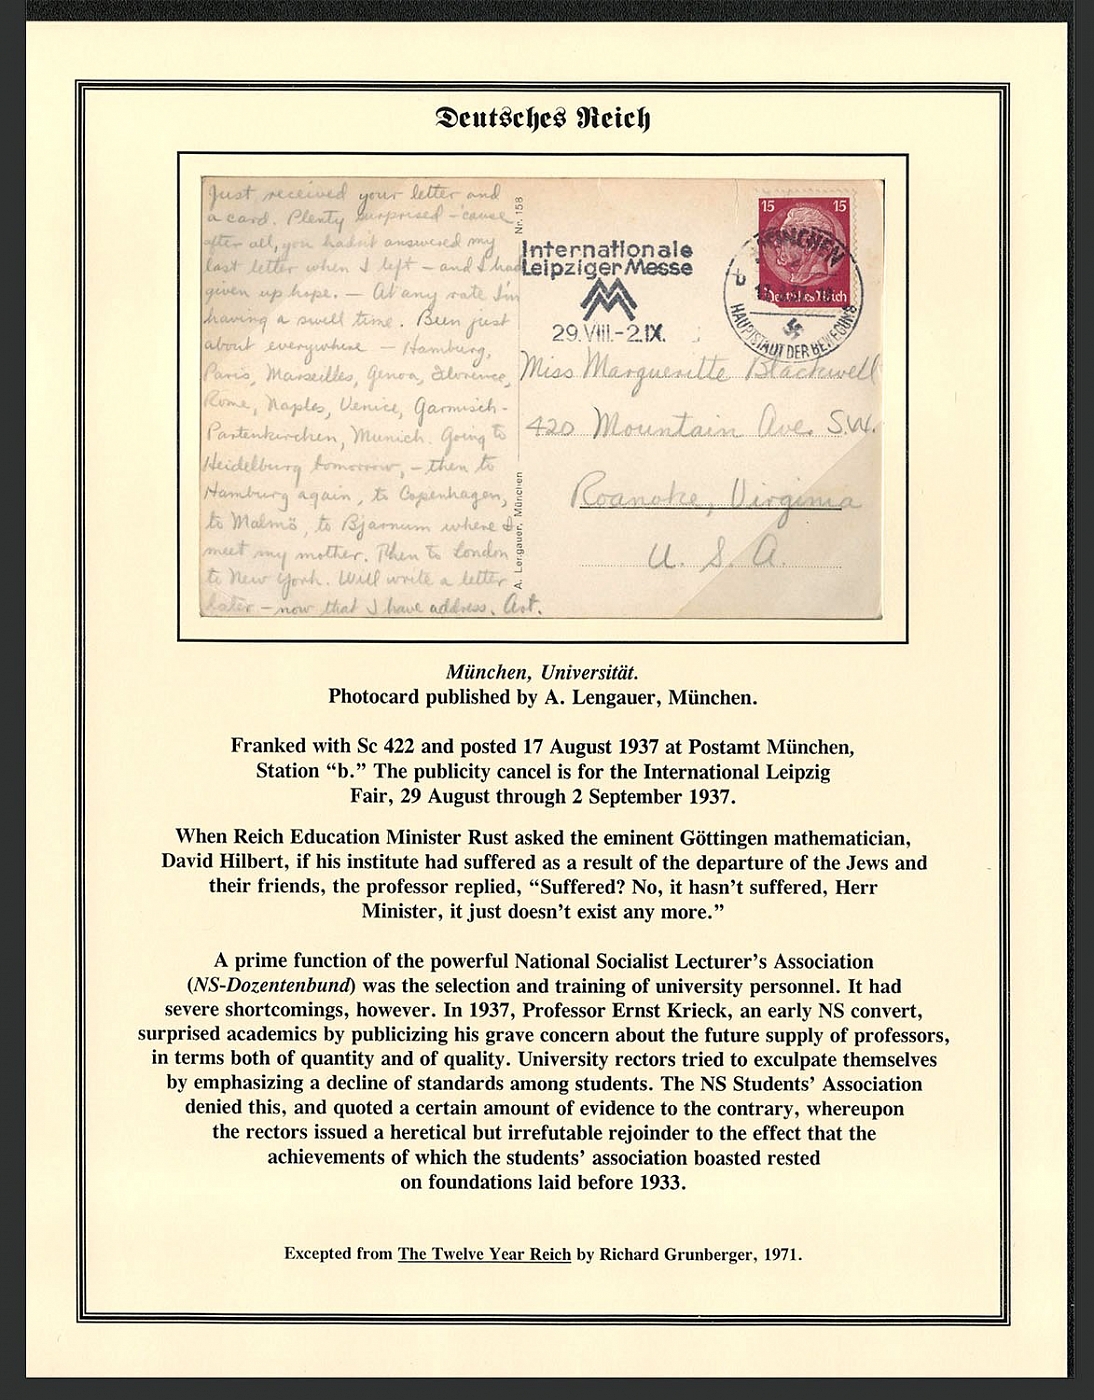 Deutsches Reich
Just received your letter and
a card. Plenty surprised - 'cause
after all, you hadn't answered my
last letter when I left - and I had
given up hope. - At any rate I'm
having a swell time. Been just
about everywhere - Hamburg,
Paris, Marseilles, Genoa, Florence,
Rome, Naples, Venice, Garmisch-
Partenkirchen, Munich. Going to
Heidelburg tomorrow, - then to
Hamburg again, to Copenhagen,
to Malmö, to Bjarnum where I
meet my mother. Then to London
to New York. Will write a letter
later - now that I have address. Art.
Nr. 158
A. Lengauer, München
Internationale
Leipziger Messe
29.VIII.-2.IX.
15 15
Deutsches Reich
MÜNCHEN
b
HAUPTSTADT DER BEWEGUNG
Miss Margueritte Blackwell
420 Mountain Ave. S.W.
Roanoke, Virginia
U. S. A.
München, Universität.
Photocard published by A. Lengauer, München.
Franked with Sc 422 and posted 17 August 1937 at Postamt München,
Station “b.” The publicity cancel is for the International Leipzig
Fair, 29 August through 2 September 1937.
When Reich Education Minister Rust asked the eminent Göttingen mathematician,
David Hilbert, if his institute had suffered as a result of the departure of the Jews and
their friends, the professor replied, “Suffered? No, it hasn’t suffered, Herr
Minister, it just doesn’t exist any more.”
A prime function of the powerful National Socialist Lecturer’s Association
(NS-Dozentenbund) was the selection and training of university personnel. It had
severe shortcomings, however. In 1937, Professor Ernst Krieck, an early NS convert,
surprised academics by publicizing his grave concern about the future supply of professors,
in terms both of quantity and of quality. University rectors tried to exculpate themselves
by emphasizing a decline of standards among students. The NS Students’ Association
denied this, and quoted a certain amount of evidence to the contrary, whereupon
the rectors issued a heretical but irrefutable rejoinder to the effect that the
achievements of which the students’ association boasted rested
on foundations laid before 1933.
Excepted from The Twelve Year Reich by Richard Grunberger, 1971.